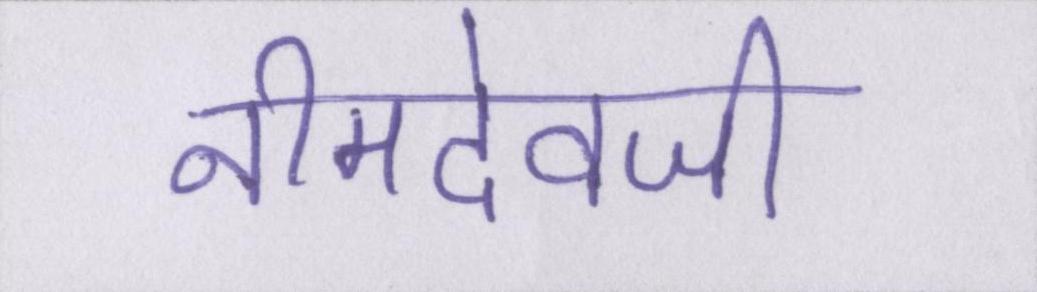 नीमदेवजी